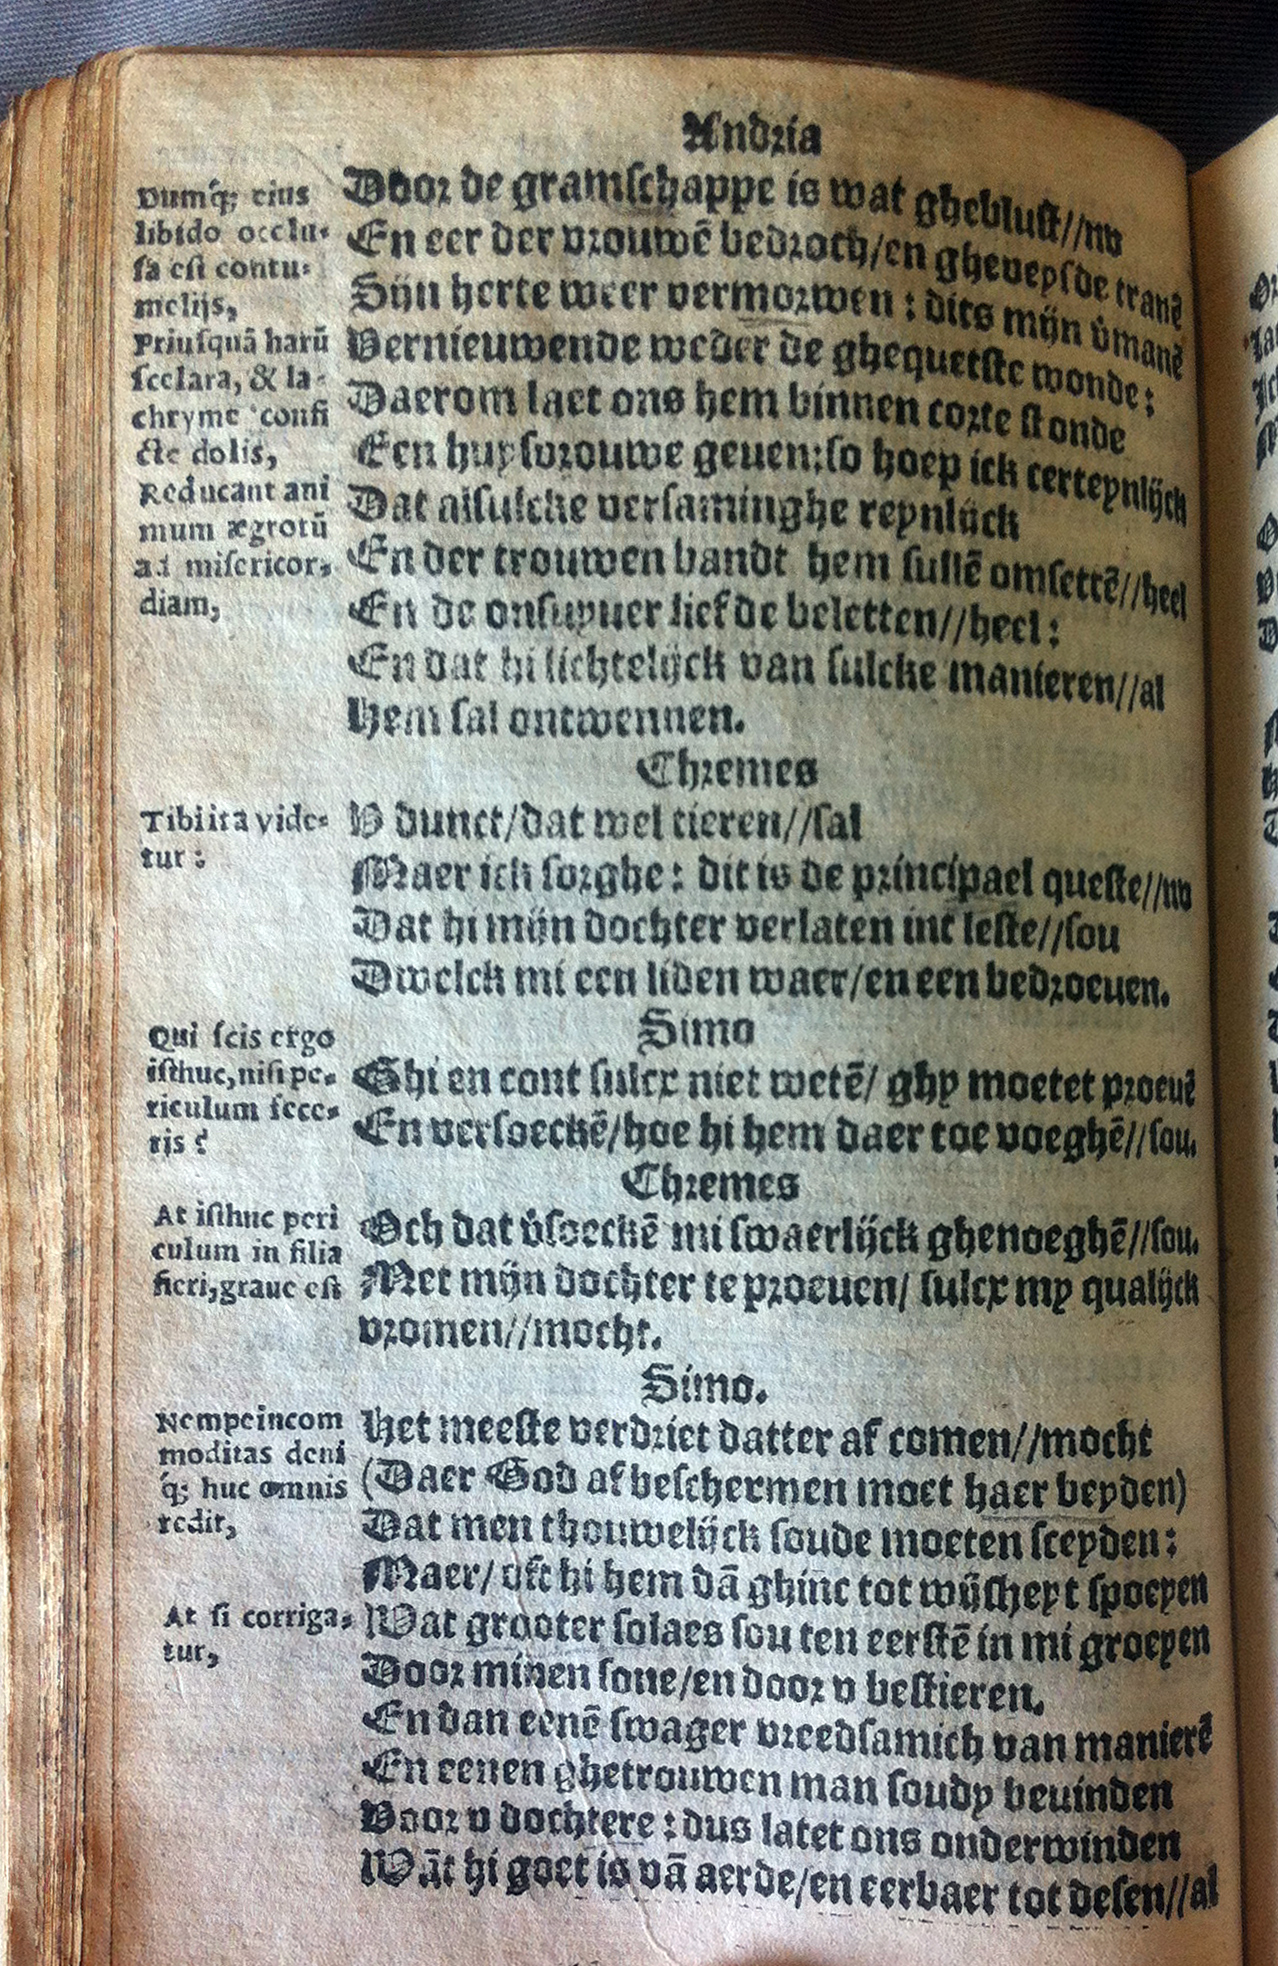 Andria
Dumq́; eius
libido occlu-
sa est contu-
melijs,
Priusquā harū
scelara, & la-
chryme confi
ctæ dolis,
Reducant ani
mum ægrotū
ad misericor-
diam,
Door de gramschappe is wat gheblust//nv
En eer der vrouwē bedroch/en gheveynsde tranē
Sijn herte weer vermorwen: dits mijn v̓manē
Vernieuwende weder de ghequetste wonde:
Daerom laet ons hem binnen corte stonde
Een huysvrouwe geuen: so hoep ick certeynlijck
Dat alsulcke versaminghe reynlijck
En der trouwen bandt hem sullē omsettē//heel
En de onsuyuer liefde beletten//heel:
En dat hi lichtelijck van sulcke manieren//al
Hem sal ontwennen.
Chremes
Tibi ita vide-
tur:
V dunct/dat wel tieren//sal
Maer ick sorghe: dit is de principael queste//nv
Dat hi mijn dochter verlaten int leste//sou
Dwelck mi een liden waer/en een bedroeuen.
Simo
Qui scis ergo
isthuc, nisi pe-
riculum fece-
ris?
Ghi en cont sulcx niet wetē/ ghy moetet proeuē
En versoeckē/hoe hi hem daer toe voeghē//sou.
Chremes
At isthuc peri
culum in filia
fieri, graue est
Och dat v̓soeckē mi swaerlijck ghenoeghē//sou.
Met mijn dochter te proeuen/ sulcx my qualijck
vromen//mocht.
Simo.
Nempe incom
moditas deni
q́; huc omnis
redit,
Het meeste verdriet datter af comen//mocht
(Daer God af beschermen moet haer beyden)
Dat men thouwelijck soude moeten sceyden:
Maer/ oft hi hem dā ghinc tot wijsheyt spoeyen
At si corriga-
tur,
Wat grooter solaes sou ten eerstē in mi groeyen
Door minen sone/en door v bestieren.
En dan eenē swager vreedsamich van manierē
En eenen ghetrouwen man soudy beuinden
Voor v dochtere: dus latet ons onderwinden
Wāt hi goet is vā aerde/en eerbaer tot desen//al